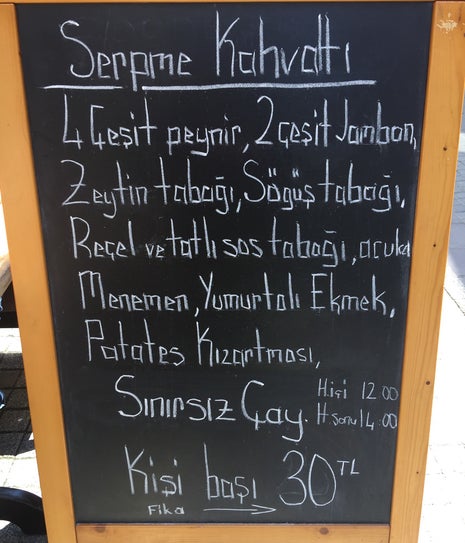 Serpme Kahvaltı
4 Çeşit peynir, 2 çeşit Jambon,
Zeytin tabağı, Söğüş tabağı,
Reçel ve tatlı sos tabağı, acuka
Menemen, Yumurtalı Ekmek,
Patates Kızartması,
Sınırsız Çay.
H.içi 12:00
H.sonu 14:00
Kişi başı 30 TL
Fika